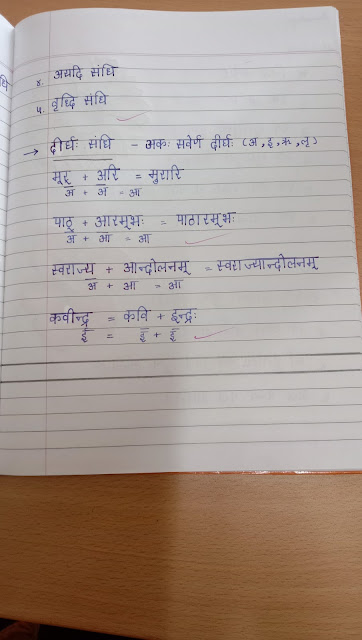 ४. अयादि संधि
५. वृध्दि संधि
→ दीर्घः संधि - अकः सवेर्ण दीर्घः (अ, इ, ऋ, लृ)
मूर् + अरि = मुरारि
अ + अ = आ
पाठ् + आरम्भः = पाठारम्भः
अ + आ = आ
स्वराज्य + आन्दोलनम् = स्वराज्यान्दोलनम्
अ + आ = आ
कवीन्द्र = कवि + इन्द्रः
ई = इ + इ